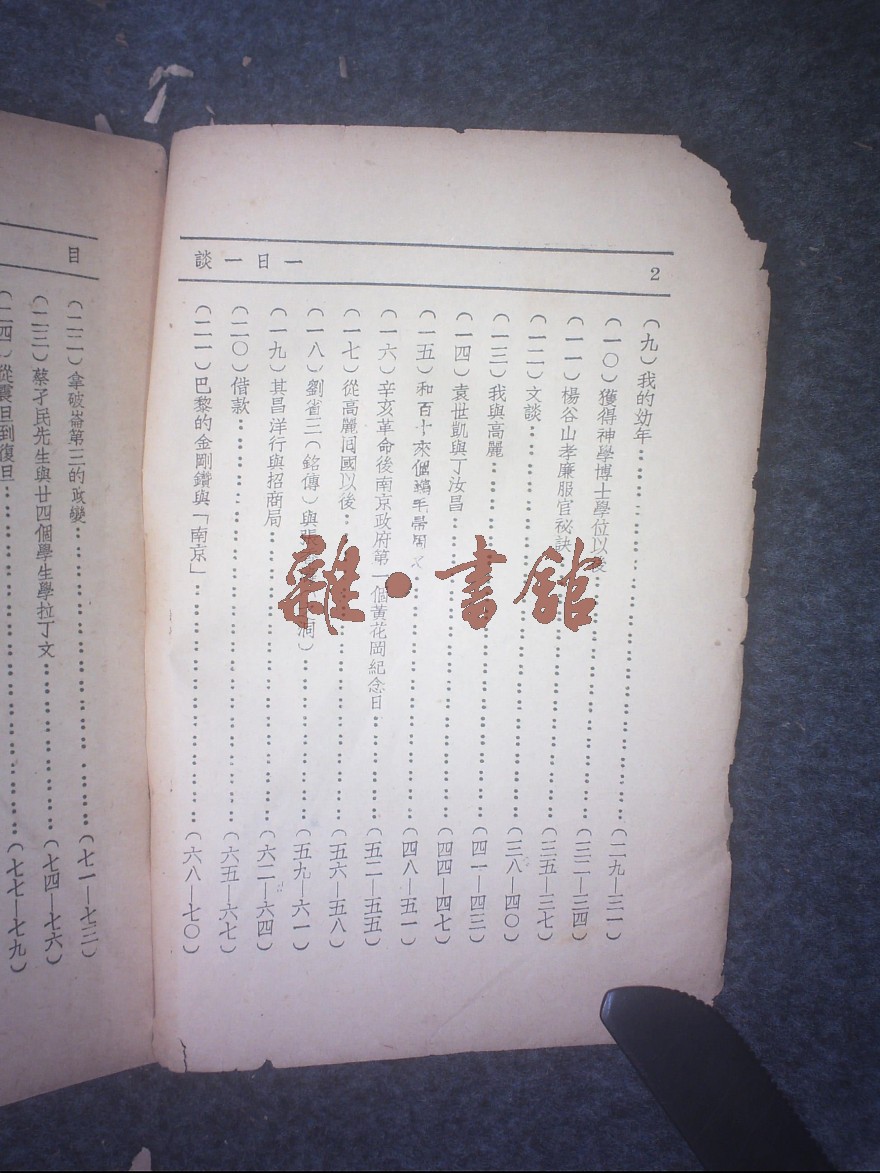 一日一談
2
(九)我的幼年……(二九—三一)
(一〇)獲得神學博士學位以後……(三二—三四)
(一一)楊谷山孝廉服官祕訣……(三五—三七)
(一二)文談……(三八—四〇)
(一三)我與高麗……(四一—四三)
(一四)袁世凱與丁汝昌……(四四—四七)
(一五)和百十來個……(四八—五一)
(一六)辛亥革命後南京政府第一個黃花岡紀念日……(五二—五五)
(一七)從高麗囘國以後……(五六—五八)
(一八)劉省三(銘傳)與張……洞)……(五九—六一)
(一九)其昌洋行與招商局……(六二—六四)
(二〇)借款……(六五—六七)
(二一)巴黎的金剛鑽與「南京」……(六八—七〇)
目
(二二)拿破崙第三的政變……(七一—七三)
(二三)蔡孑民先生與廿四個學生學拉丁文……(七四—七六)
(二四)從震旦到復旦……(七七—七九)
雜·書館